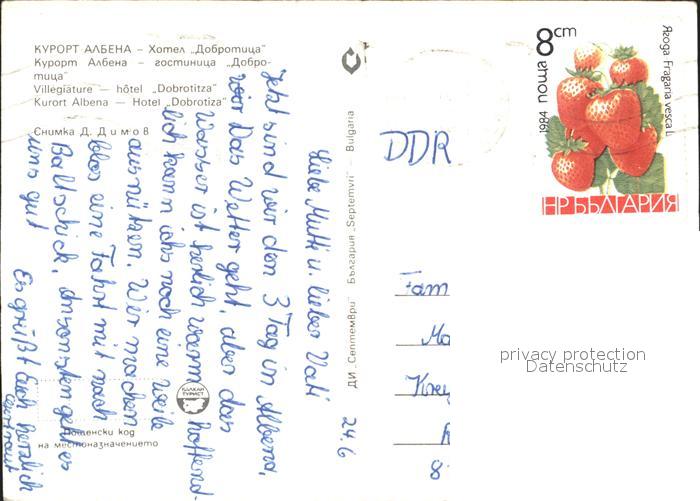 КУРОРТ АЛБЕНА – Хотел „Добротица"
Курорт Албена – гостиница „Добро-
тица"
Villegiature – hôtel „Dobrotitza"
Kurort Albena – Hotel „Dobrotiza"
Снимка Д. Димов
24.6
Liebe Mutti u. lieber Vati
Jetzt sind wir den 3 Tag in Albena,
wir das Wetter geht, aber das
Wasser ist herlich warm hoffend-
lich kann ichs noch eine weile
ausnützen. Wir machen
blos eine Fahrt mit nach
Baltschick, ansonsten geht es
uns gut
Es grüßt Euch herzlich
БАЛКАН
ТУРИСТ
Пощенски код
на местоназначението
ДИ „Септември" България „Septemvri" – Bulgaria
DDR
Fam
8
1984 ПОЩА 8 СТ
Ягода Fragaria vesca L.
НР БЪЛГАРИЯ
privacy protection
Datenschutz